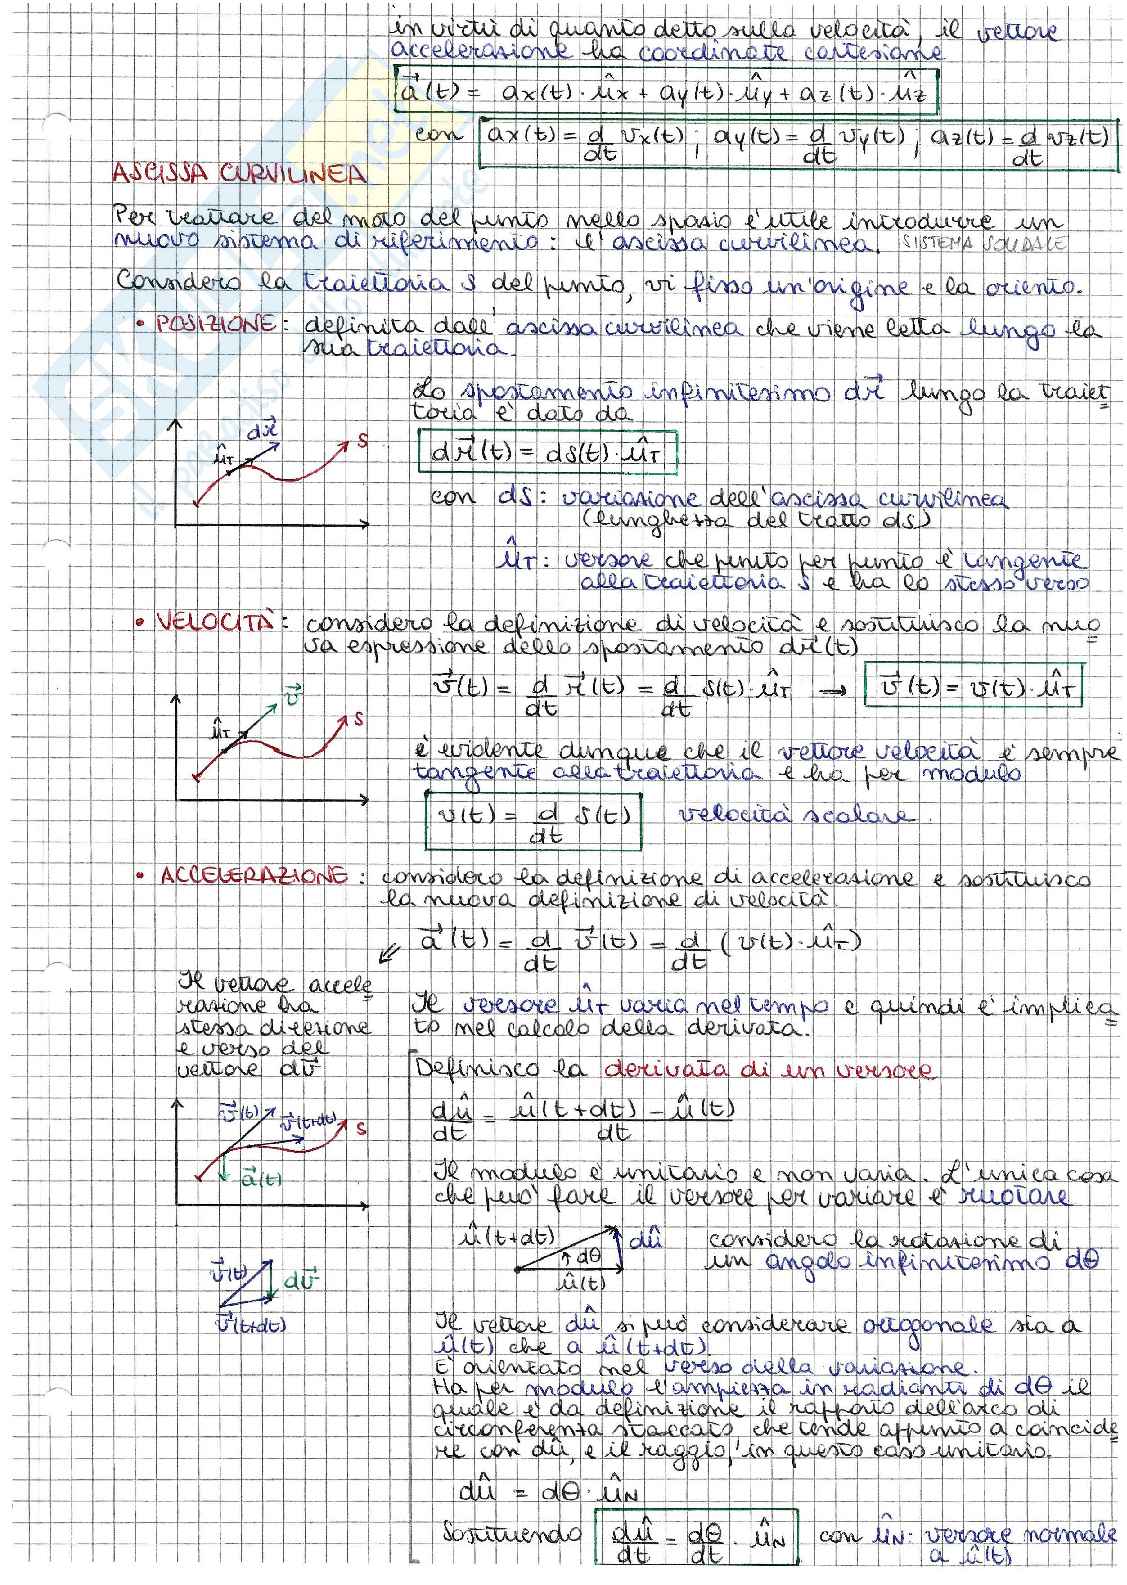 in virtù di quanto detto sulla velocità, il vettore
accelerazione ha coordinate cartesiane
a⃗(t) = ax(t)·ûx + ay(t)·ûy + az(t)·ûz
con ax(t) = d/dt vx(t) ; ay(t) = d/dt vy(t) ; az(t) = d/dt vz(t)
ASCISSA CURVILINEA
Per trattare del moto del punto nello spazio è utile introdurre un
nuovo sistema di riferimento: l'ascissa curvilinea. SISTEMA SOLIDALE
Considero la traiettoria S del punto, vi fisso un'origine e la oriento.
• POSIZIONE: definita dall'ascissa curvilinea che viene letta lungo la
sua traiettoria.
Lo spostamento infinitesimo dr⃗ lungo la traiet
toria è dato da
dr⃗(t) = dS(t)·ûT
dr⃗
ûT
S
con dS: variazione dell'ascissa curvilinea
(lunghezza del tratto dS)
ûT: versore che punto per punto è tangente
alla traiettoria S e ha lo stesso verso
• VELOCITÀ: considero la definizione di velocità e sostituisco la nuo
va espressione dello spostamento dr⃗(t)
v⃗(t) = d/dt r⃗(t) = d/dt S(t)·ûT → v⃗(t) = v(t)·ûT
v⃗
ûT
S
è evidente dunque che il vettore velocità è sempre
tangente alla traiettoria e ha per modulo
v(t) = d/dt S(t) velocità scalare
• ACCELERAZIONE: considero la definizione di accelerazione e sostituisco
la nuova definizione di velocità
a⃗(t) = d/dt v⃗(t) = d/dt (v(t)·ûT)
Il vettore accele
razione ha
stessa direzione
e verso del
vettore dv⃗
Il versore ûT varia nel tempo e quindi è implica
to nel calcolo della derivata.
Definisco la derivata di un versore
v⃗(t)
v⃗(t+dt)
S
a⃗(t)
dû/dt = û(t+dt) − û(t) / dt
Il modulo è unitario e non varia. L'unica cosa
che può fare il versore per variare è ruotare
û(t+dt)
dû
dθ
û(t)
considero la rotazione di
un angolo infinitesimo dθ
v⃗(t)
dv⃗
v⃗(t+dt)
Il vettore dû si può considerare ortogonale sia a
û(t) che a û(t+dt).
È orientato nel verso della variazione.
Ha per modulo l'ampiezza in radianti di dθ il
quale è da definizione il rapporto dell'arco di
circonferenza staccato, che tende appunto a coincide
re con dû, e il raggio, in questo caso unitario.
dû = dθ·ûN
Sostituendo dû/dt = dθ/dt · ûN con ûN: versore normale
a û(t)